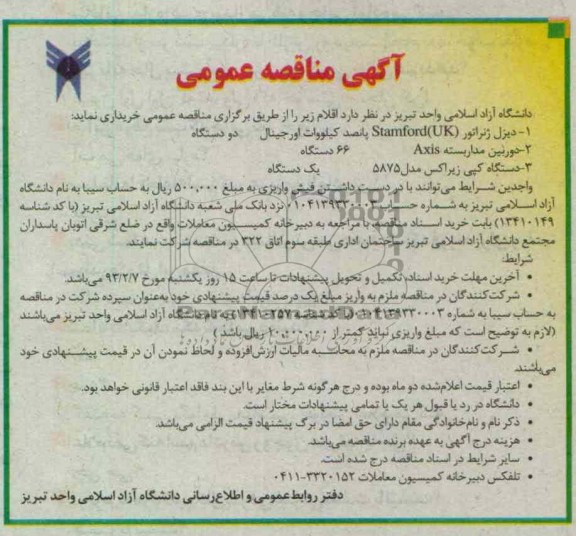 آگهی مناقصه عمومی
دانشگاه آزاد اسلامی واحد تبریز در نظر دارد اقلام زیر را از طریق برگزاری مناقصه عمومی خریداری نماید:
۱- دیزل ژنراتور Stamford(UK) پانصد کیلووات اورجینال دو دستگاه
۲-دوربین مداربسته Axis ۶۶ دستگاه
۳-دستگاه کپی زیراکس مدل۵۸۷۵ یک دستگاه
واجدین شرایط می‌توانند با در دست داشتن فیش واریزی به مبلغ ۵۰۰,۰۰۰ ریال به حساب سیبا به نام دانشگاه
آزاد اسلامی تبریز به شماره حساب ۰۱۰۴۱۳۹۳۳۰۰۰۳ نزد بانک ملی شعبه دانشگاه آزاد اسلامی تبریز (با کد شناسه
۱۳۴۱۰۱۴۹) بابت خرید اسناد مناقصه، با مراجعه به دبیرخانه کمیسیون معاملات واقع در ضلع شرقی اتوبان پاسداران
مجتمع دانشگاه آزاد اسلامی تبریز ساختمان اداری طبقه سوم اتاق ۳۲۲ در مناقصه شرکت نمایند.
شرایط:
• آخرین مهلت خرید اسناد، تکمیل و تحویل پیشنهادات تا ساعت ۱۵ روز یکشنبه مورخ ۹۳/۲/۷ می‌باشد.
• شرکت‌کنندگان در مناقصه ملزم به واریز مبلغ یک درصد قیمت پیشنهادی خود به‌عنوان سپرده شرکت در مناقصه
به حساب سیبا به شماره ۰۱۰۴۱۳۹۳۳۰۰۰۳ با کد شناسه ۱۳۴۱۰۲۵۷ به نام دانشگاه آزاد اسلامی واحد تبریز می‌باشند
(لازم به توضیح است که مبلغ واریزی نباید کمتر از ۱۰,۰۰۰,۰۰۰ ریال باشد)
• شرکت‌کنندگان در مناقصه ملزم به محاسبه مالیات ارزش‌افزوده و لحاظ نمودن آن در قیمت پیشنهادی خود
می‌باشند.
• اعتبار قیمت اعلام‌شده دو ماه بوده و درج هرگونه شرط مغایر با این بند فاقد اعتبار قانونی خواهد بود.
• دانشگاه در رد یا قبول هر یک یا تمامی پیشنهادات مختار است.
• ذکر نام و نام‌خانوادگی مقام دارای حق امضا در برگ پیشنهاد قیمت الزامی می‌باشد.
• هزینه درج آگهی به عهده برنده مناقصه می‌باشد.
• سایر شرایط در اسناد مناقصه درج شده است.
• تلفکس دبیرخانه کمیسیون معاملات ۳۳۲۰۱۵۲-۰۴۱۱
دفتر روابط‌عمومی و اطلاع‌رسانی دانشگاه آزاد اسلامی واحد تبریز